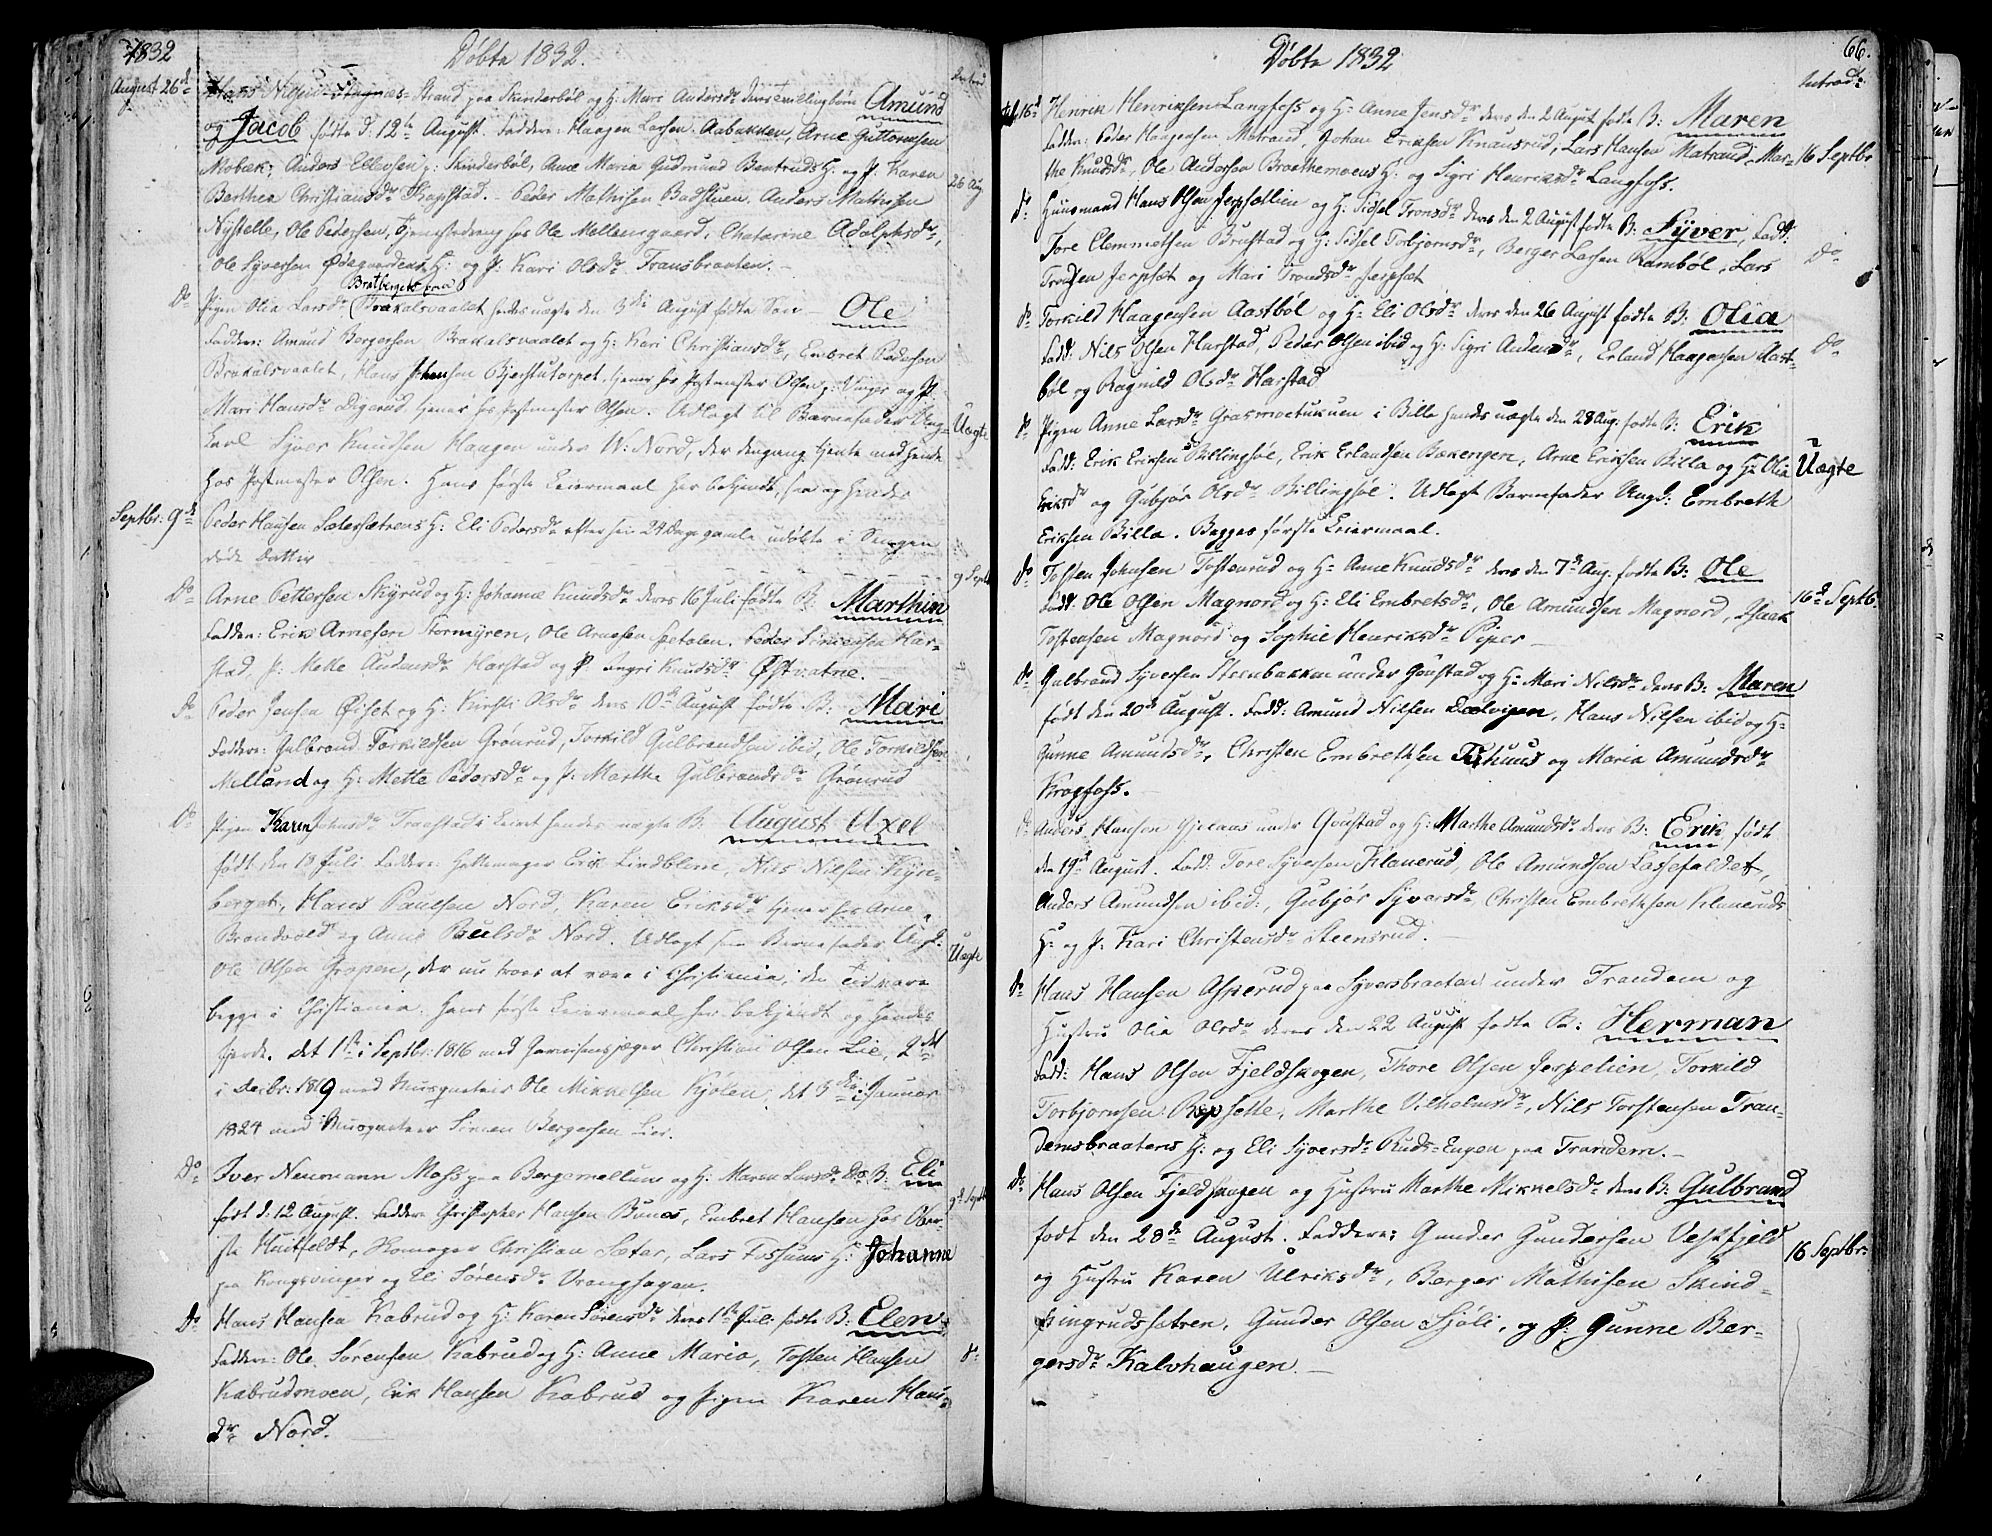 1832
Døbte 1832.
August 26de
Strand paa Skinderböl og H: Mari Andersdr deres Tvillingbörn Amund
og Jacob födte d. 12te August. Faddere: Haagen Larsen Aabakken, Arne Guttormsen
Mobek, Anders Ellevsen p: Skinderböl, Anne Maria Gudmund Bentruds H: og P. Karen
26 Aug.
Berthea Christiansdr Skapstad. - Peder Mathisen Badstuen, Anders Mathisen
Nystelle, Ole Pedersen, Tjenestedreng hos Ole Mellemgaard, Chatarine Adolphsdr,
Ole Syversen Ödegaardens H: og P: Kari Olsdr Fransbraaten.
Do Pigen Olia Larsdr Brakalsvaalet hendes uægte den 3die August födte Sön - Ole
Faddere: Amund Bergersen Brakalsvaalet og H: Kari Christiansdr, Embret Pedersen
Brakalsvaalet, Hans Johnsen Gjerstutorpet, tjener hos Postmester Olsen p: Vinger og P:
Mari Hansdr Digerud tjener hos Postmester Olsen. Udlagt til Barnefader Ung-
Uægte
karl Syver Knudsen Haagen under W: Nord, der dengang tjente med hende
hos Postmester Olsen. Hans förste Leiermaal her bekjendt, saa og hendes
Septbr: 9de Peder Hansen Sætersætrens H: Eli Pedersdr efter sin 24 Dage gamle udöbte i Svagen
döde Datter
9 Septb
Do Arne Pettersen Skyrud og H: Johanne Knudsdr deres 16 Juli födte B: Marthin
Faddere: Erik Arnesen Stormyren, Ole Arnesen Setolen, Peder Simensen Har-
stad, P: Mette Andersdr Harstad og P. Ingri Knudsdr Östvatne.
Do Peder Jensen Öiset og H: Kirsti Olsdr deres 10de August födte B: Mari
Faddere: Gulbrand Torkildsen Grönrud, Torkild Gulbrandsen ibid, Ole Torkildsen
Melland og H: Mette Pedersdr og P: Marthe Gulbrandsdr Grönrud
Do Pigen Karen Johnsdr Traastad i Leiret hendes uægte B: August Axel
födt den 18 Juli Faddere: Hattemager Erik Lindblom, Nils Nilsen Kjön-
berget, Hans Paulsen Nord, Karen Eriksdr tjener hos Arne
Brandvold og Anne Paulsdr Nord. Udlagt som Barnefader Ungk:
Uægte
Ole Olsen Gropen, der nu troes at være i Christiania, den Tid vare
begge i Christiania. Hans förste Leiermaal her bekjendt og hendes
fjerde. Det 1te i Septbr: 1816 med Garnisonsjæger Christian Olsen Lie, 2det
i Decbr: 1819 med Musqueteer Ole Mikkelsen Kjölen, det 3die i Januar
1824 med Musqueteer Simen Bergersen Lier.
Do Iver Neumann Moss paa Bergemellum og H: Maren Larsdr Ds B: Eli
9de Septb
födt d. 12 August. Faddere Christopher Hansen Bunes, Embret Hansen hos Ober-
ste Huitfeldt, Skomager Christian Sæter, Lars Fossums H: Johanne
paa Kongsvinger og Eli Sörensdr Vranghagen.
Do Hans Hansen Kabrud og H: Karen Sörensdr deres 1te Jul. födte B: Elen
Do
Faddere: Ole Sörensen Kabrud og H: Anne Maria, Tosten Hansen
Kabrudmoen, Erik Hansen Kabrud og Pigen Karen Hans-
dr Nord.
Döbte 1832
66.
Introd:
16de Henrik Henriksen Langfoss og H: Anne Jensdr deres den 2 August födte B: Maren
Fadd: Peder Haagensen Matrand, Johan Eriksen Knausrud, Lars Hansen Matrand, Mar-
16 Septbr
the Knudsdr, Ole Andersen Braathemoens H: og Sigri Henriksdr Langfoss.
Do Huusmand Hans Olsen Jerpsetlien og H: Sidsel Tronsdr deres den 2 August födte B: Syver, Fadd:
Tore Clemmetsen Brustad og H: Sidsel Torbjörnsdr, Berger Larsen Ramböl, Lars
Do
Tronsen Jerpset og Mari Trondsdr Jerpset
Do Torkild Haagensen Aastböl og H: Eli Olsdr deres den 26 August födte B: Olia
Fadd: Nils Olsen Harstad, Peder Olsen ibid og H: Sigri Andersdr, Erland Haagensen Aast-
Do
böl og Ragnild Olsdr Harstad
Do Pigen Anne Larsdr Grasmoetukuen i Billa hendes uægte den 28 Aug. födte B: Erik
Fadd: Erik Eriksen Billingsöe, Erik Erlandsen Bækengen, Arne Eriksen Billa og H: Olia
Uægte
Eriksdr og Gubjör Olsdr Billingsöe. Udlagt Barnefader Ungk: Embreth
Eriksen Billa. Begges förste Leiermaal.
Do Tosten Johnsen Tostenrud og H: Anne Knudsdr deres den 7de Aug. födte B: Ole
Fadd: Ole Olsen Magnord og H: Eli Embretsdr, Ole Amundsen Magnord, Isaak
16de Septb.
Tostensen Magnord og Sophie Henriksdr Piper
Do Gulbrand Syversen Steenbakken under Goustad og H: Mari Nilsdr deres B: Maren
födt den 20de August. Fadd: Amund Nilsen Dælvigen, Hans Nilsen ibid og H:
Gunne Amundsdr, Christen Embrethsen Tukuus og Maria Amundsdr
Krogfoss.
Do Anders Hansen Gjelaas under Goustad og H: Marthe Amundsdr deres B: Erik födt
den 19de August. Fadd: Tore Syversen Klanerud, Ole Amundsen Lassefaldet,
Anders Amundsen ibid:, Gubjör Syversdr, Christen Embrethsen Klaneruds
H: og P: Kari Christensdr Steensrud.
Do Hans Hansen Asperud paa Syversbraaten under Trandem og
Hustru Olia Olsdr deres den 22 August födte B: Herman
Fadd: Hans Olsen Fjeldskogen, Thore Olsen Jerpelien, Torkild
Torbjörnsen Repsette, Marthe Vilhelmsdr, Nils Torstensen Tran-
demsbraatens H: og Eli Syversdr Ruds-Engen paa Trandem.
Do Hans Olsen Fjeldskogen og Hustru Marthe Mikkelsdr deres B: Gulbrand
födt den 28de August. Faddere: Gunder Gundersen Vestfjeld
16 Septbr:
og Hustru Karen Ulriksdr, Berger Mathisen Skind-
pingrudsætren, Gunder Olsen Sjöli, og P: Gunne Ber-
gersdr Kalvhaugen.